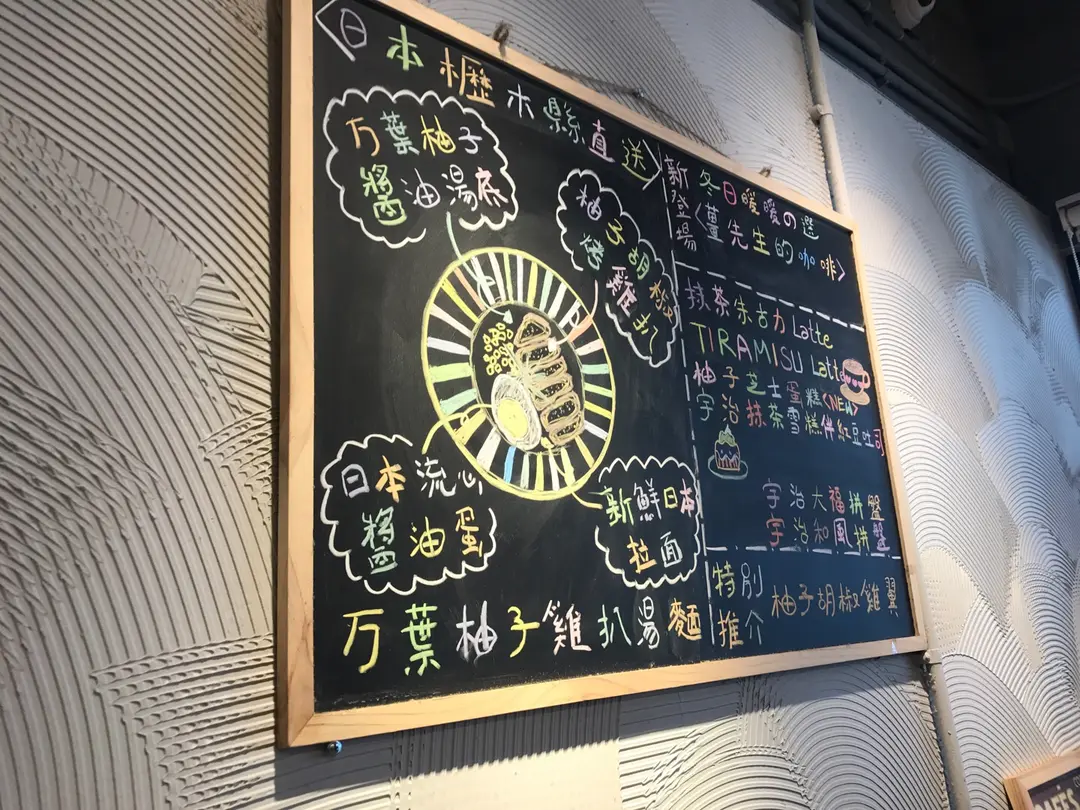 〈日本櫪木縣直送〉
万葉柚子
醬油湯底
柚子胡椒
烤雞扒
日本流心
醬油蛋
新鮮日本
拉面
万葉柚子雞扒湯麵
新登場
冬日暖暖の選
〈薑先生的咖啡〉
抹茶朱古力Latte
TIRAMISU Latte
柚子芝士蛋糕<NEW>
宇治抹茶雪糕伴紅豆吐司
宇治大福拼盤
宇治和風拼盤
特別推介
柚子胡椒雞翼